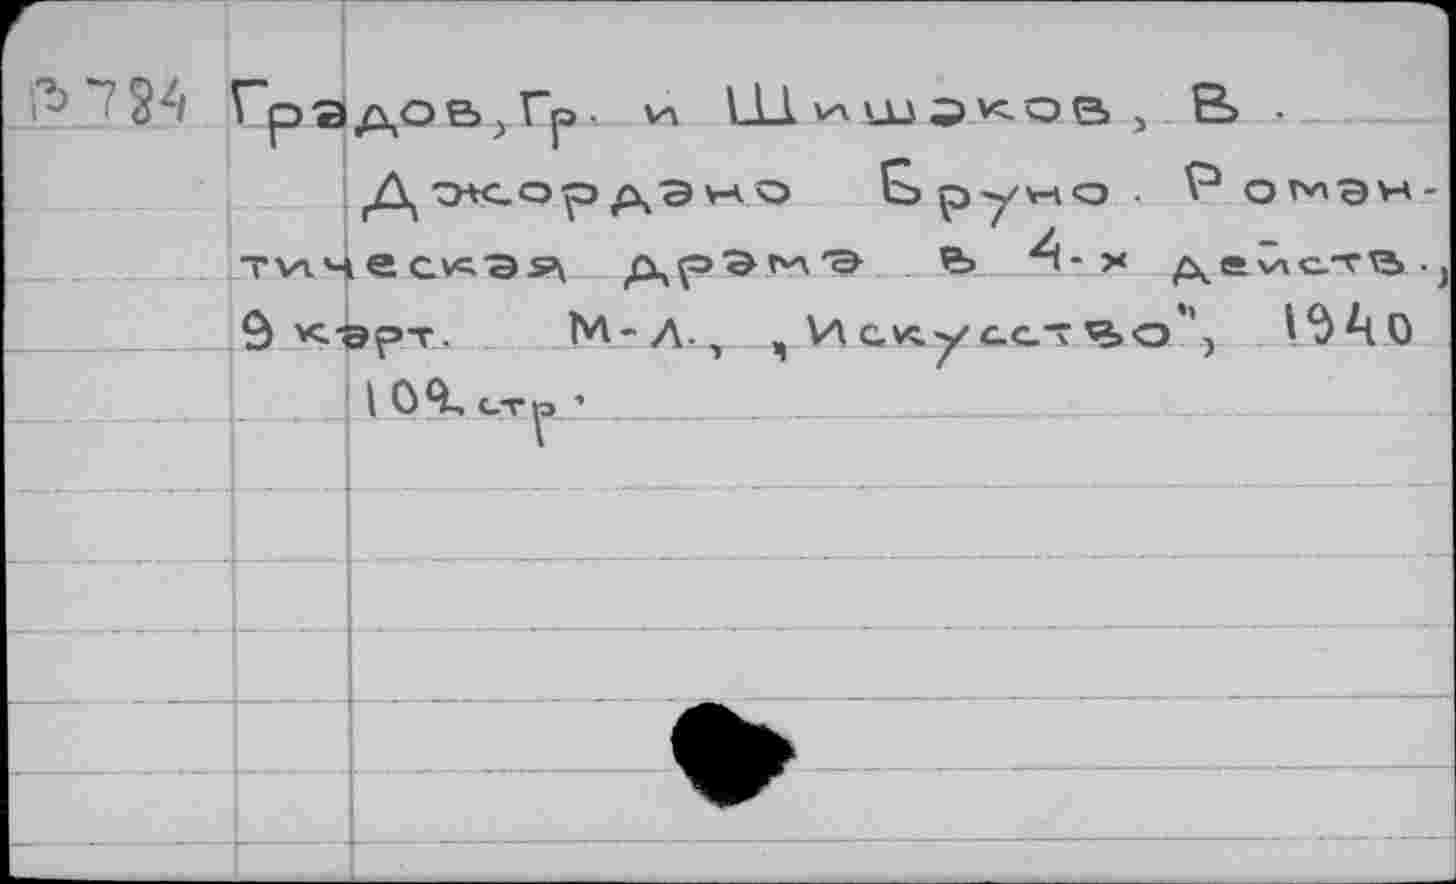 В784 Градов, Гр. и Шишаков, В.
Джордано Бруно. Роман-
тическая драма в 4-х действ.,
9 карт. М-Л., „Искусство", 1940
109. стр.